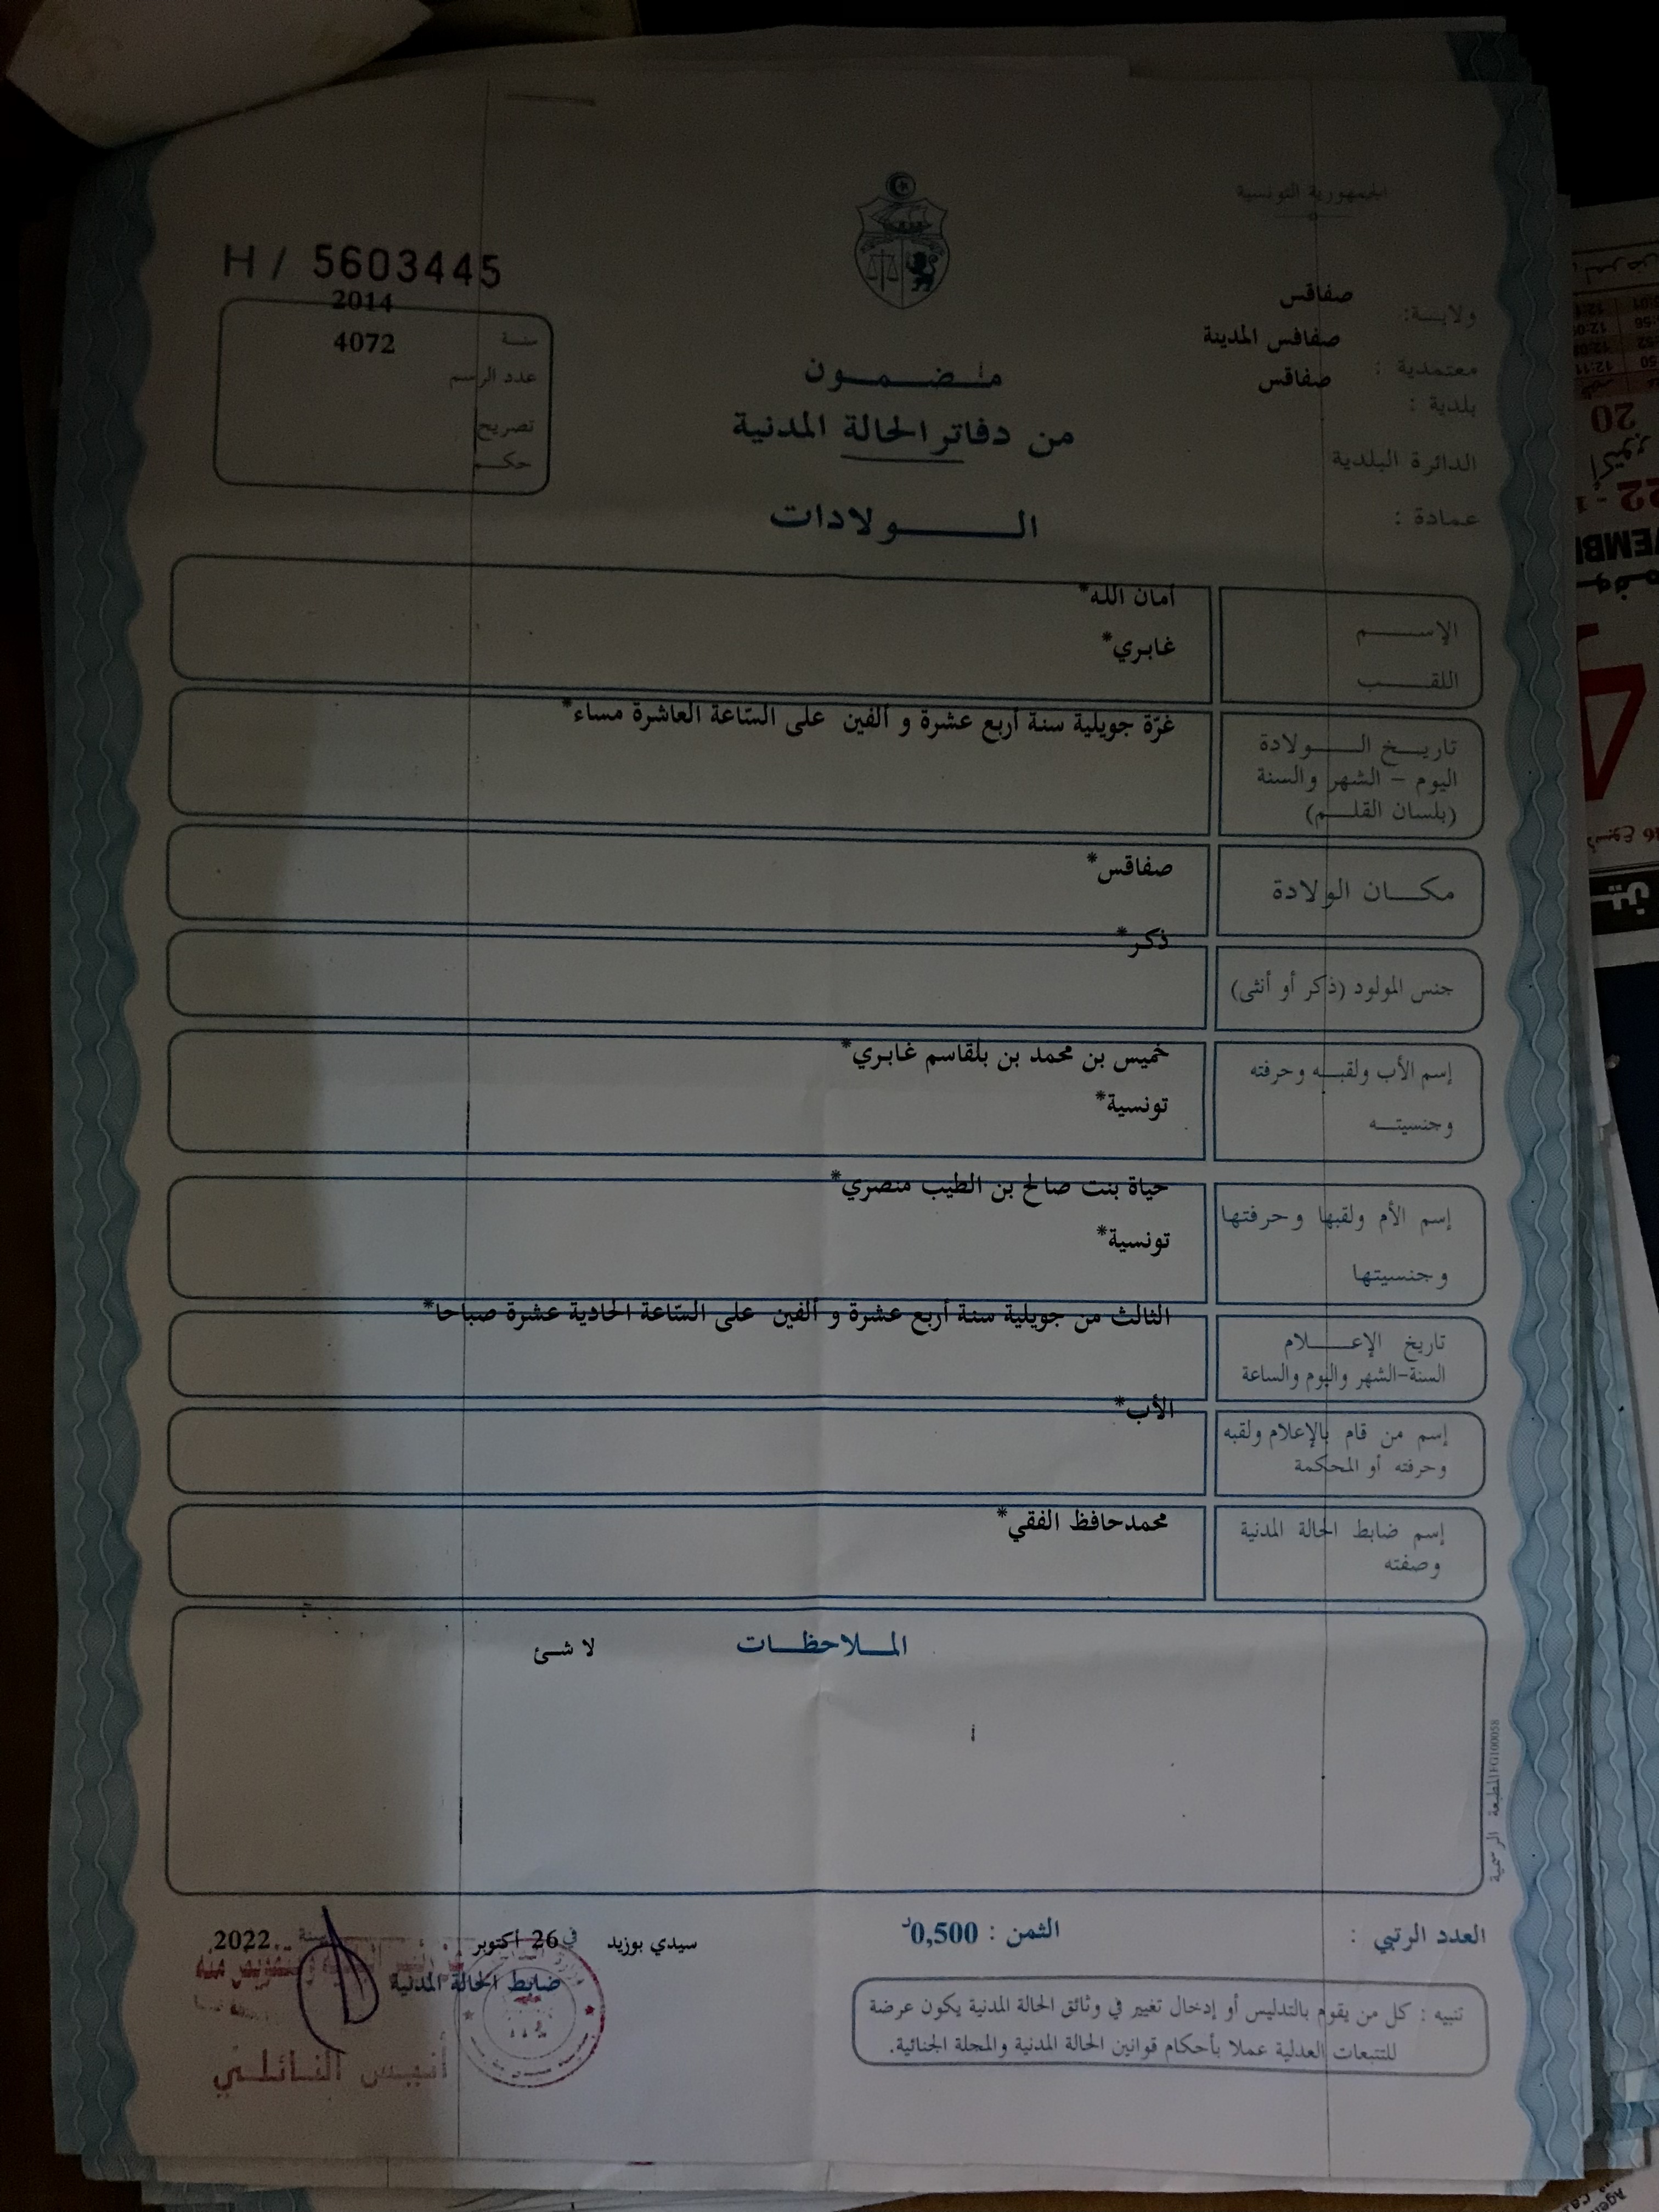 الجمهورية التونسية
H / 5603445
ولايـــة: صفاقس
معتمدية : صفاقس المدينة
بلدية : صفاقس
الدائرة البلدية
عمادة :
سنــة 2014
عدد الرسم 4072
تصريح
حكــم
مـضـمـون
من دفاتر الحالة المدنية
الـــولادات
الإســـم أمان الله*
اللقـــب غابري*
تاريــخ الـــولادة
اليوم - الشهر والسنة
(بلسان القلــم)
غرّة جويلية سنة أربع عشرة و ألفين على السّاعة العاشرة مساء*
مكـــان الولادة صفاقس*
جنس المولود (ذكر أو أنثى) ذكر*
إسم الأب ولقبـه وحرفته خميس بن محمد بن بلقاسم غابري*
وجنسيتــه تونسية*
إسم الأم ولقبها وحرفتها حياة بنت صالح بن الطيب منصري*
وجنسيتها تونسية*
تاريخ الإعـــلام
السنة-الشهر واليوم والساعة
الثالث من جويلية سنة أربع عشرة و ألفين على السّاعة الحادية عشرة صباحا*
إسم من قام بالإعلام ولقبه
وحرفته أو المحكمة
الأب*
إسم ضابط الحالة المدنية
وصفته
محمدحافظ الفقي*
المــلاحظــات لا شئ
المطبعة الرسمية
العدد الرتبي :
الثمن : 0,500د
سيدي بوزيد في 26 اكتوبر سنة 2022
ضابط الحالة المدنية
أنيس النائلي
تنبيه : كل من يقوم بالتدليس أو إدخال تغيير في وثائق الحالة المدنية يكون عرضة
للتتبعات العدلية عملا بأحكام قوانين الحالة المدنية والمجلة الجنائية.